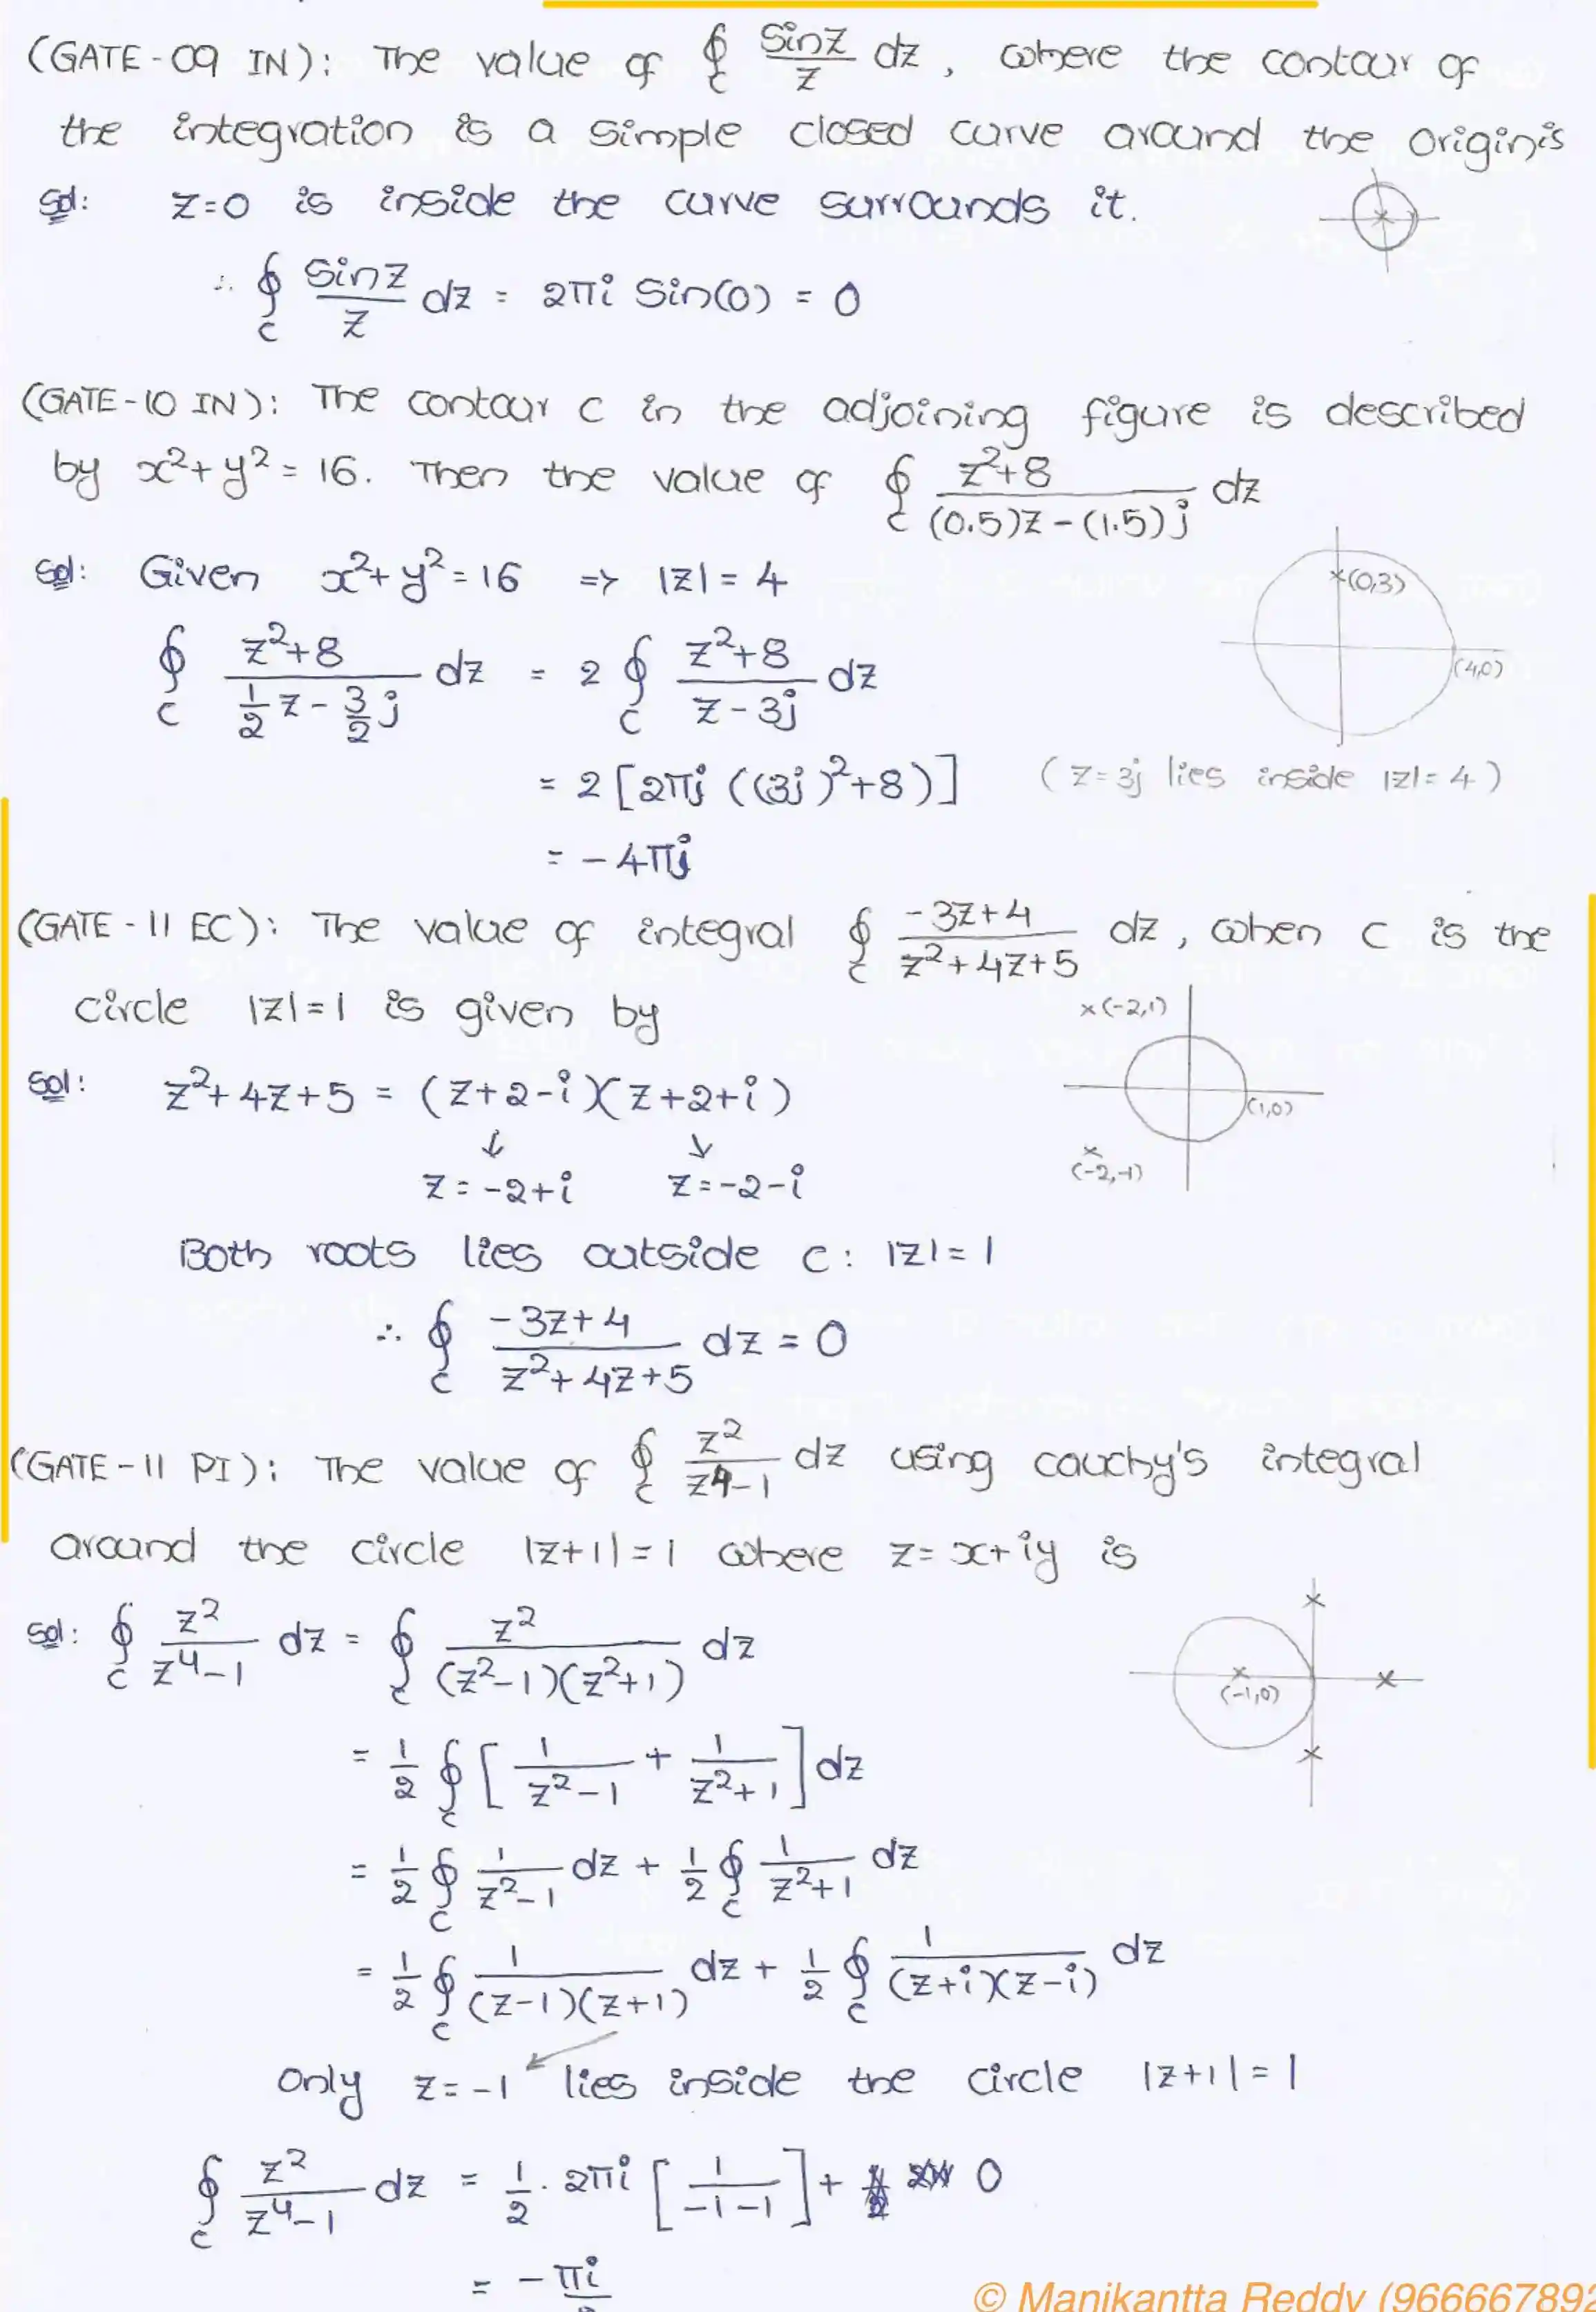 (GATE-09 IN): The value of ∮_C sinz/z dz, where the contour of
the integration is a simple closed curve around the origin is
Sol: z=0 is inside the curve surrounds it.
∴ ∮_C sinz/z dz = 2πi sin(0) = 0
(GATE-10 IN): The contour C in the adjoining figure is described
by x²+y²=16. Then the value of ∮_C (z²+8)/((0.5)z-(1.5)j) dz
Sol: Given x²+y²=16 => |z|=4
×(0,3)
(4,0)
∮_C (z²+8)/(1/2 z - 3/2 j) dz = 2 ∮_C (z²+8)/(z-3j) dz
= 2[2πj ((3j)²+8)] (z=3j lies inside |z|=4)
= -4πj
(GATE-11 EC): The value of integral ∮_C (-3z+4)/(z²+4z+5) dz, when C is the
circle |z|=1 is given by
×(-2,1)
(1,0)
×(-2,-1)
Sol: z²+4z+5 = (z+2-i)(z+2+i)
↓ ↘
z=-2+i z=-2-i
Both roots lies outside C: |z|=1
∴ ∮_C (-3z+4)/(z²+4z+5) dz = 0
(GATE-11 PI): The value of ∮_C z²/(z⁴-1) dz using cauchy's integral
around the circle |z+1|=1 where z=x+iy is
Sol: ∮_C z²/(z⁴-1) dz = ∮_C z²/((z²-1)(z²+1)) dz
(-1,0)
= 1/2 ∮_C [1/(z²-1) + 1/(z²+1)] dz
= 1/2 ∮_C 1/(z²-1) dz + 1/2 ∮_C 1/(z²+1) dz
= 1/2 ∮_C 1/((z-1)(z+1)) dz + 1/2 ∮_C 1/((z+i)(z-i)) dz
Only z=-1 lies inside the circle |z+1|=1
∮_C z²/(z⁴-1) dz = 1/2 · 2πi [1/(-1-1)] + 0
= -πi
© Manikantta Reddy (966667892